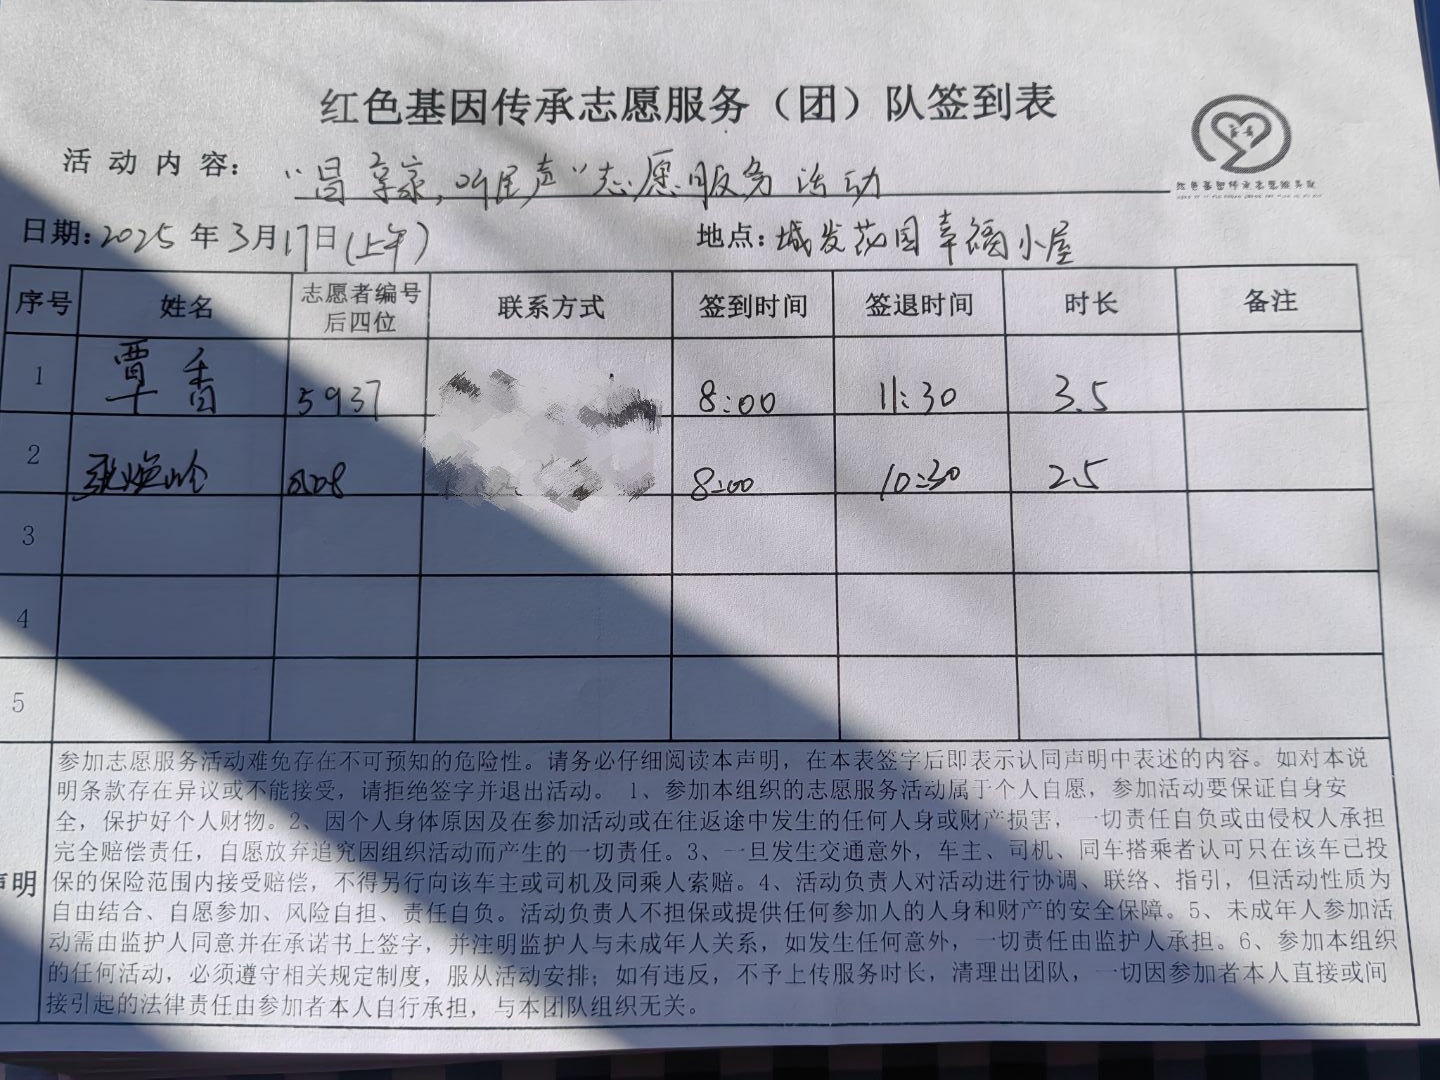 红色基因传承志愿服务（团）队签到表
活动内容：“昌享家,听民声”志愿服务活动
红色基因传承志愿服务队
日期：2025年3月17日(上午) 地点：城发花园幸福小屋
序号 姓名 志愿者编号后四位 联系方式 签到时间 签退时间 时长 备注
1 覃香 5937 8:00 11:30 3.5
2 8:00 10:30 2.5
3
4
5
参加志愿服务活动难免存在不可预知的危险性。请务必仔细阅读本声明，在本表签字后即表示认同声明中表述的内容。如对本说
明条款存在异议或不能接受，请拒绝签字并退出活动。 1、参加本组织的志愿服务活动属于个人自愿，参加活动要保证自身安
全，保护好个人财物。2、因个人身体原因及在参加活动或在往返途中发生的任何人身或财产损害，一切责任自负或由侵权人承担
完全赔偿责任，自愿放弃追究因组织活动而产生的一切责任。3、一旦发生交通意外，车主、司机、同车搭乘者认可只在该车已投
声明 保的保险范围内接受赔偿，不得另行向该车主或司机及同乘人索赔。4、活动负责人对活动进行协调、联络、指引，但活动性质为
自由结合、自愿参加、风险自担、责任自负。活动负责人不担保或提供任何参加人的人身和财产的安全保障。5、未成年人参加活
动需由监护人同意并在承诺书上签字，并注明监护人与未成年人关系，如发生任何意外，一切责任由监护人承担。6、参加本组织
的任何活动，必须遵守相关规定制度，服从活动安排；如有违反，不予上传服务时长，清理出团队，一切因参加者本人直接或间
接引起的法律责任由参加者本人自行承担，与本团队组织无关。